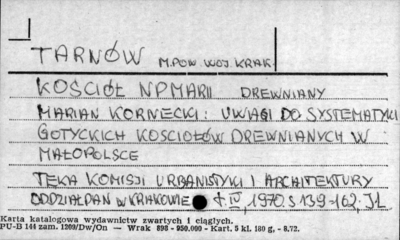 TARNÓW M.POW WOJ. KRAK.
KOŚCIÓŁ NPMARII DREWNIANY
MARIAN KORNECKI: UWAGI DO SYSTEMATYKI
GOTYCKICH KOŚCIOŁÓW DREWNIANYCH W
MAŁOPOLSCE
TEKA KOMISJI URBANISTYKI I ARCHITEKTURY
ODDZIAŁ PAN W KRAKOWIE t. IV, 1970 S 139-162, IL
Karta katalogowa wydawnictw zwartych i ciągłych.
PU-B 144 zam. 1209/Dw/On — Wrak 898 - 950.000 - Kart. 5 kl. 180 g. - 8.72.